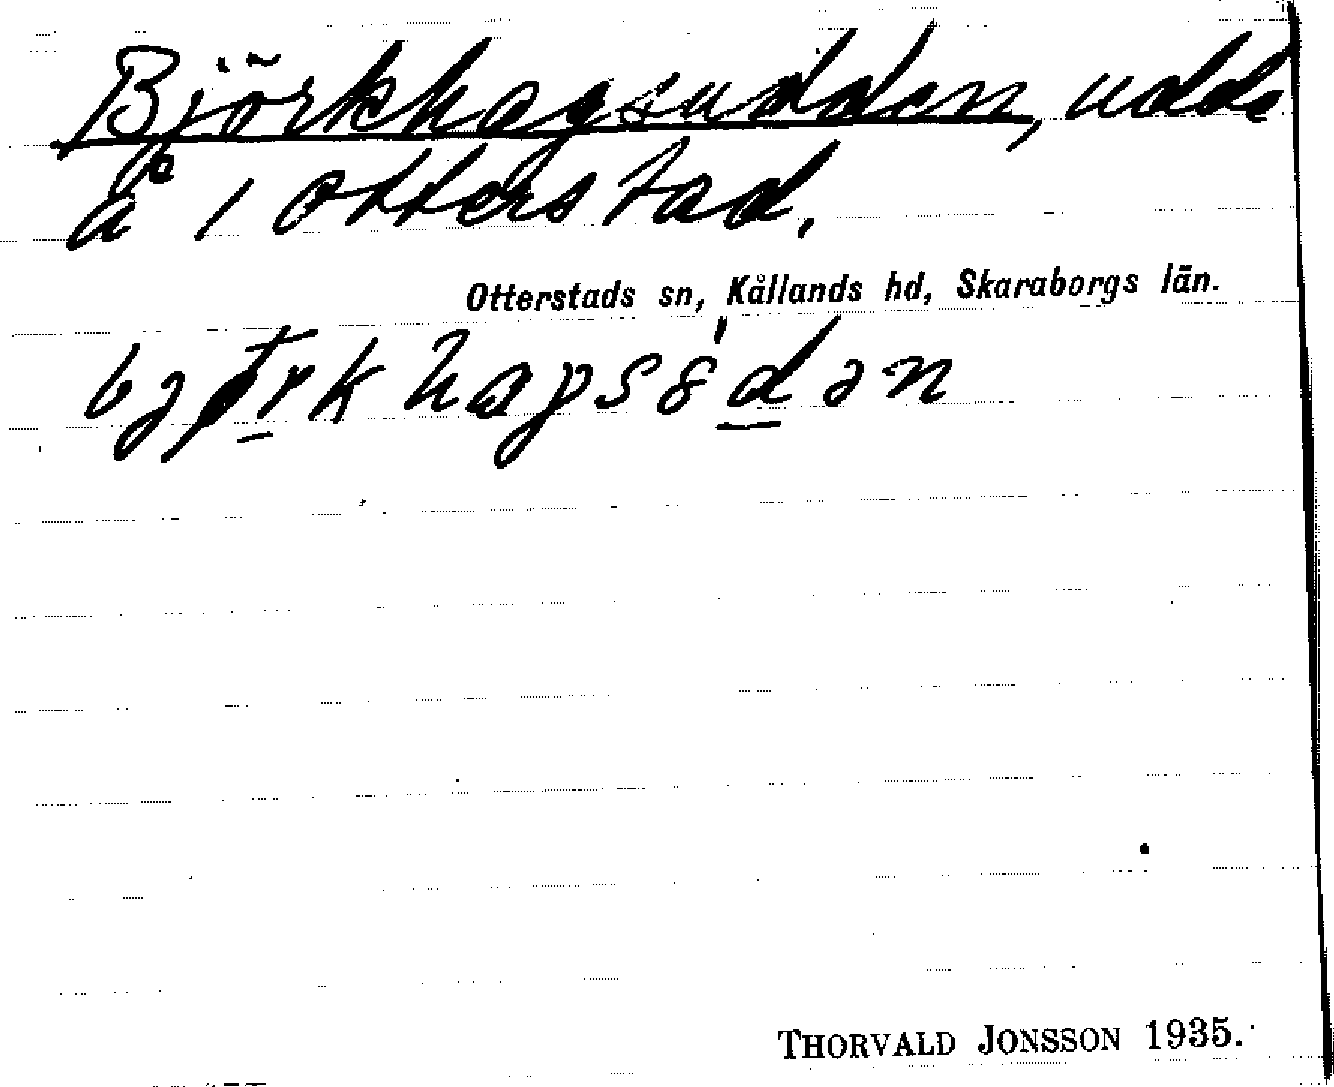 Björkhagsudden, udde
å i Otterstad.
Otterstads sn, Kållands hd, Skaraborgs län.
THORVALD JONSSON 1935.